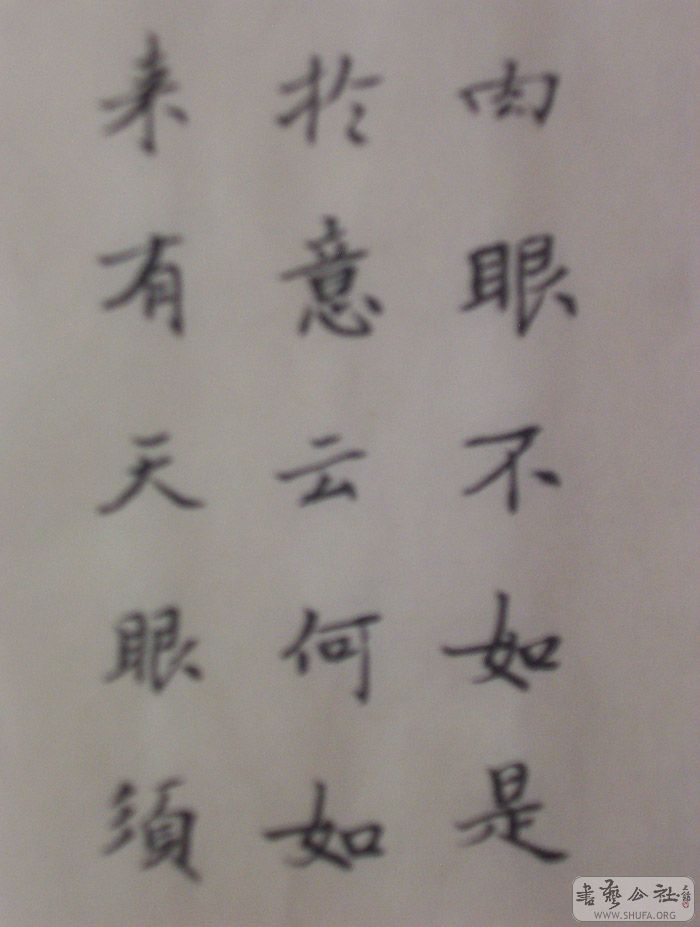 肉眼不如是
於意云何如
来有天眼須
書藝公社
WWW.SHUFA.ORG